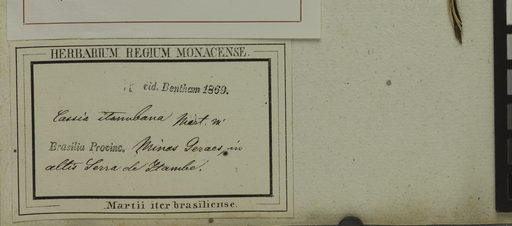 HERBARIUM REGIUM MONACENSE.
vid. Bentham 1869.
Cassia itambana Mart. m
Brasilia Provinc. Minas Geraes, in
altis Serra de Itambe.
Martii iter brasiliense.